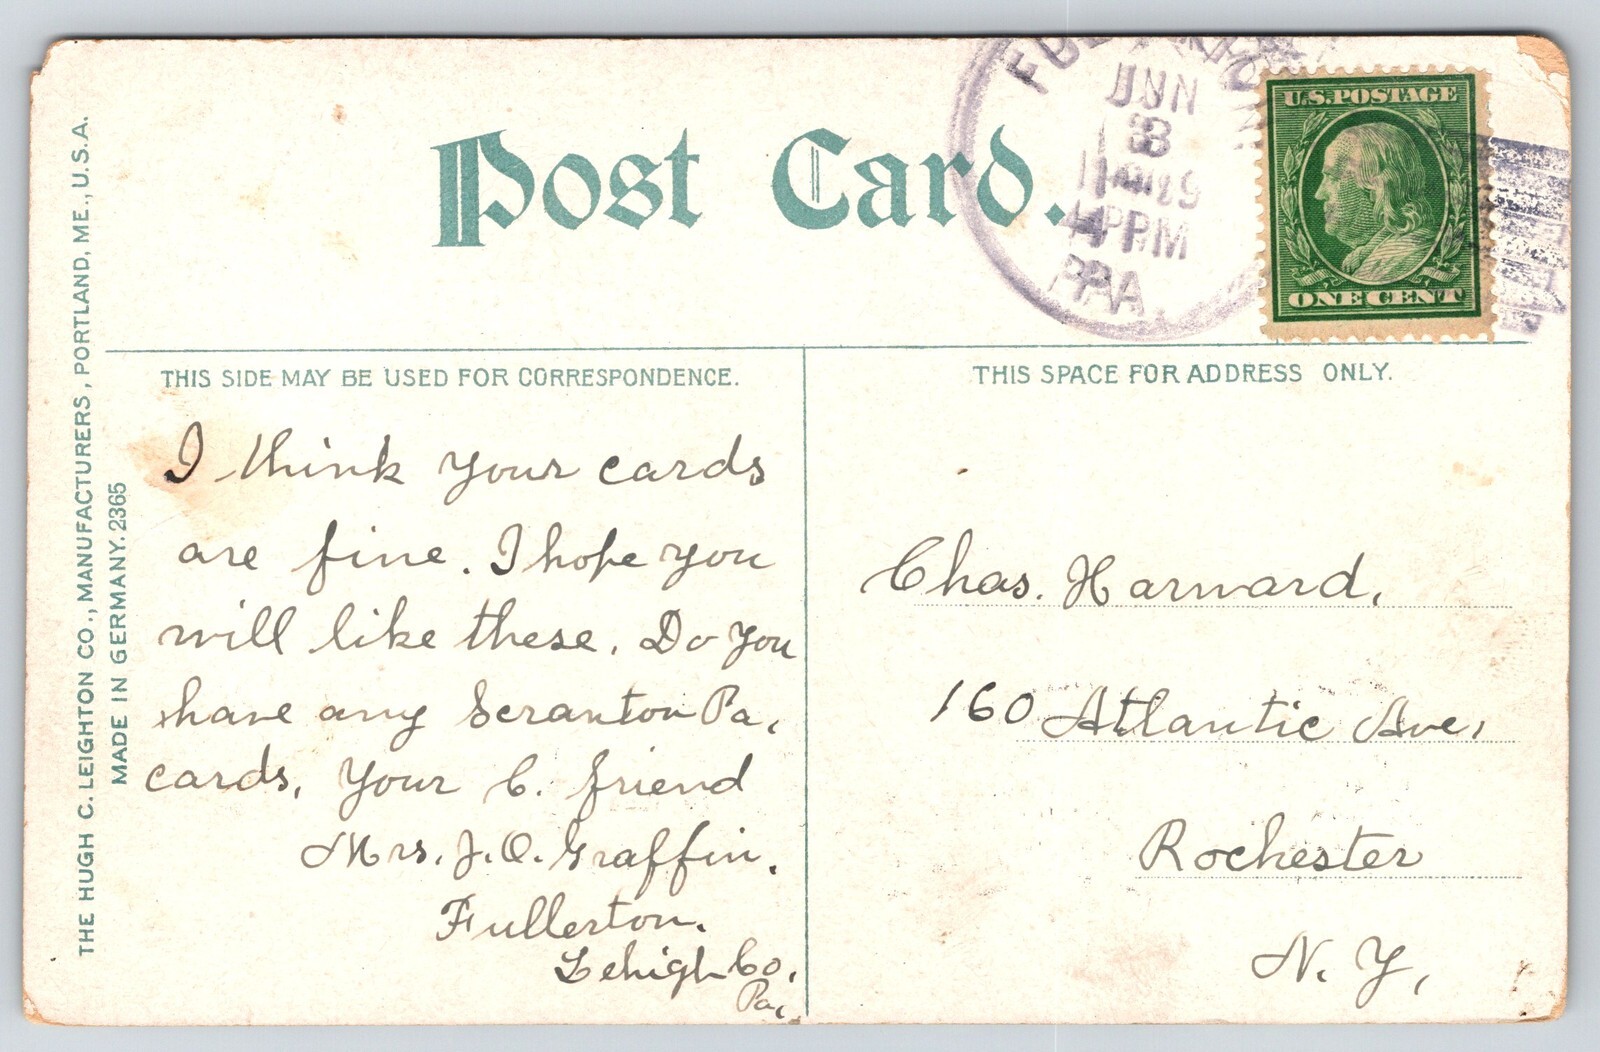 Post Card.
JUN
8
PM
PA.
U.S. POSTAGE
ONE CENT
THE HUGH C. LEIGHTON CO., MANUFACTURERS, PORTLAND, ME., U.S.A.
MADE IN GERMANY. 2365
THIS SIDE MAY BE USED FOR CORRESPONDENCE.
I think your cards
are fine. I hope you
will like these. Do you
have any Scranton Pa.
cards. Your C. friend
Mrs. J. O. Graffin.
Fullerton.
Lehigh Co.
Pa.
THIS SPACE FOR ADDRESS ONLY.
Chas. Harward,
160 Atlantic Ave,
Rochester
N. Y,